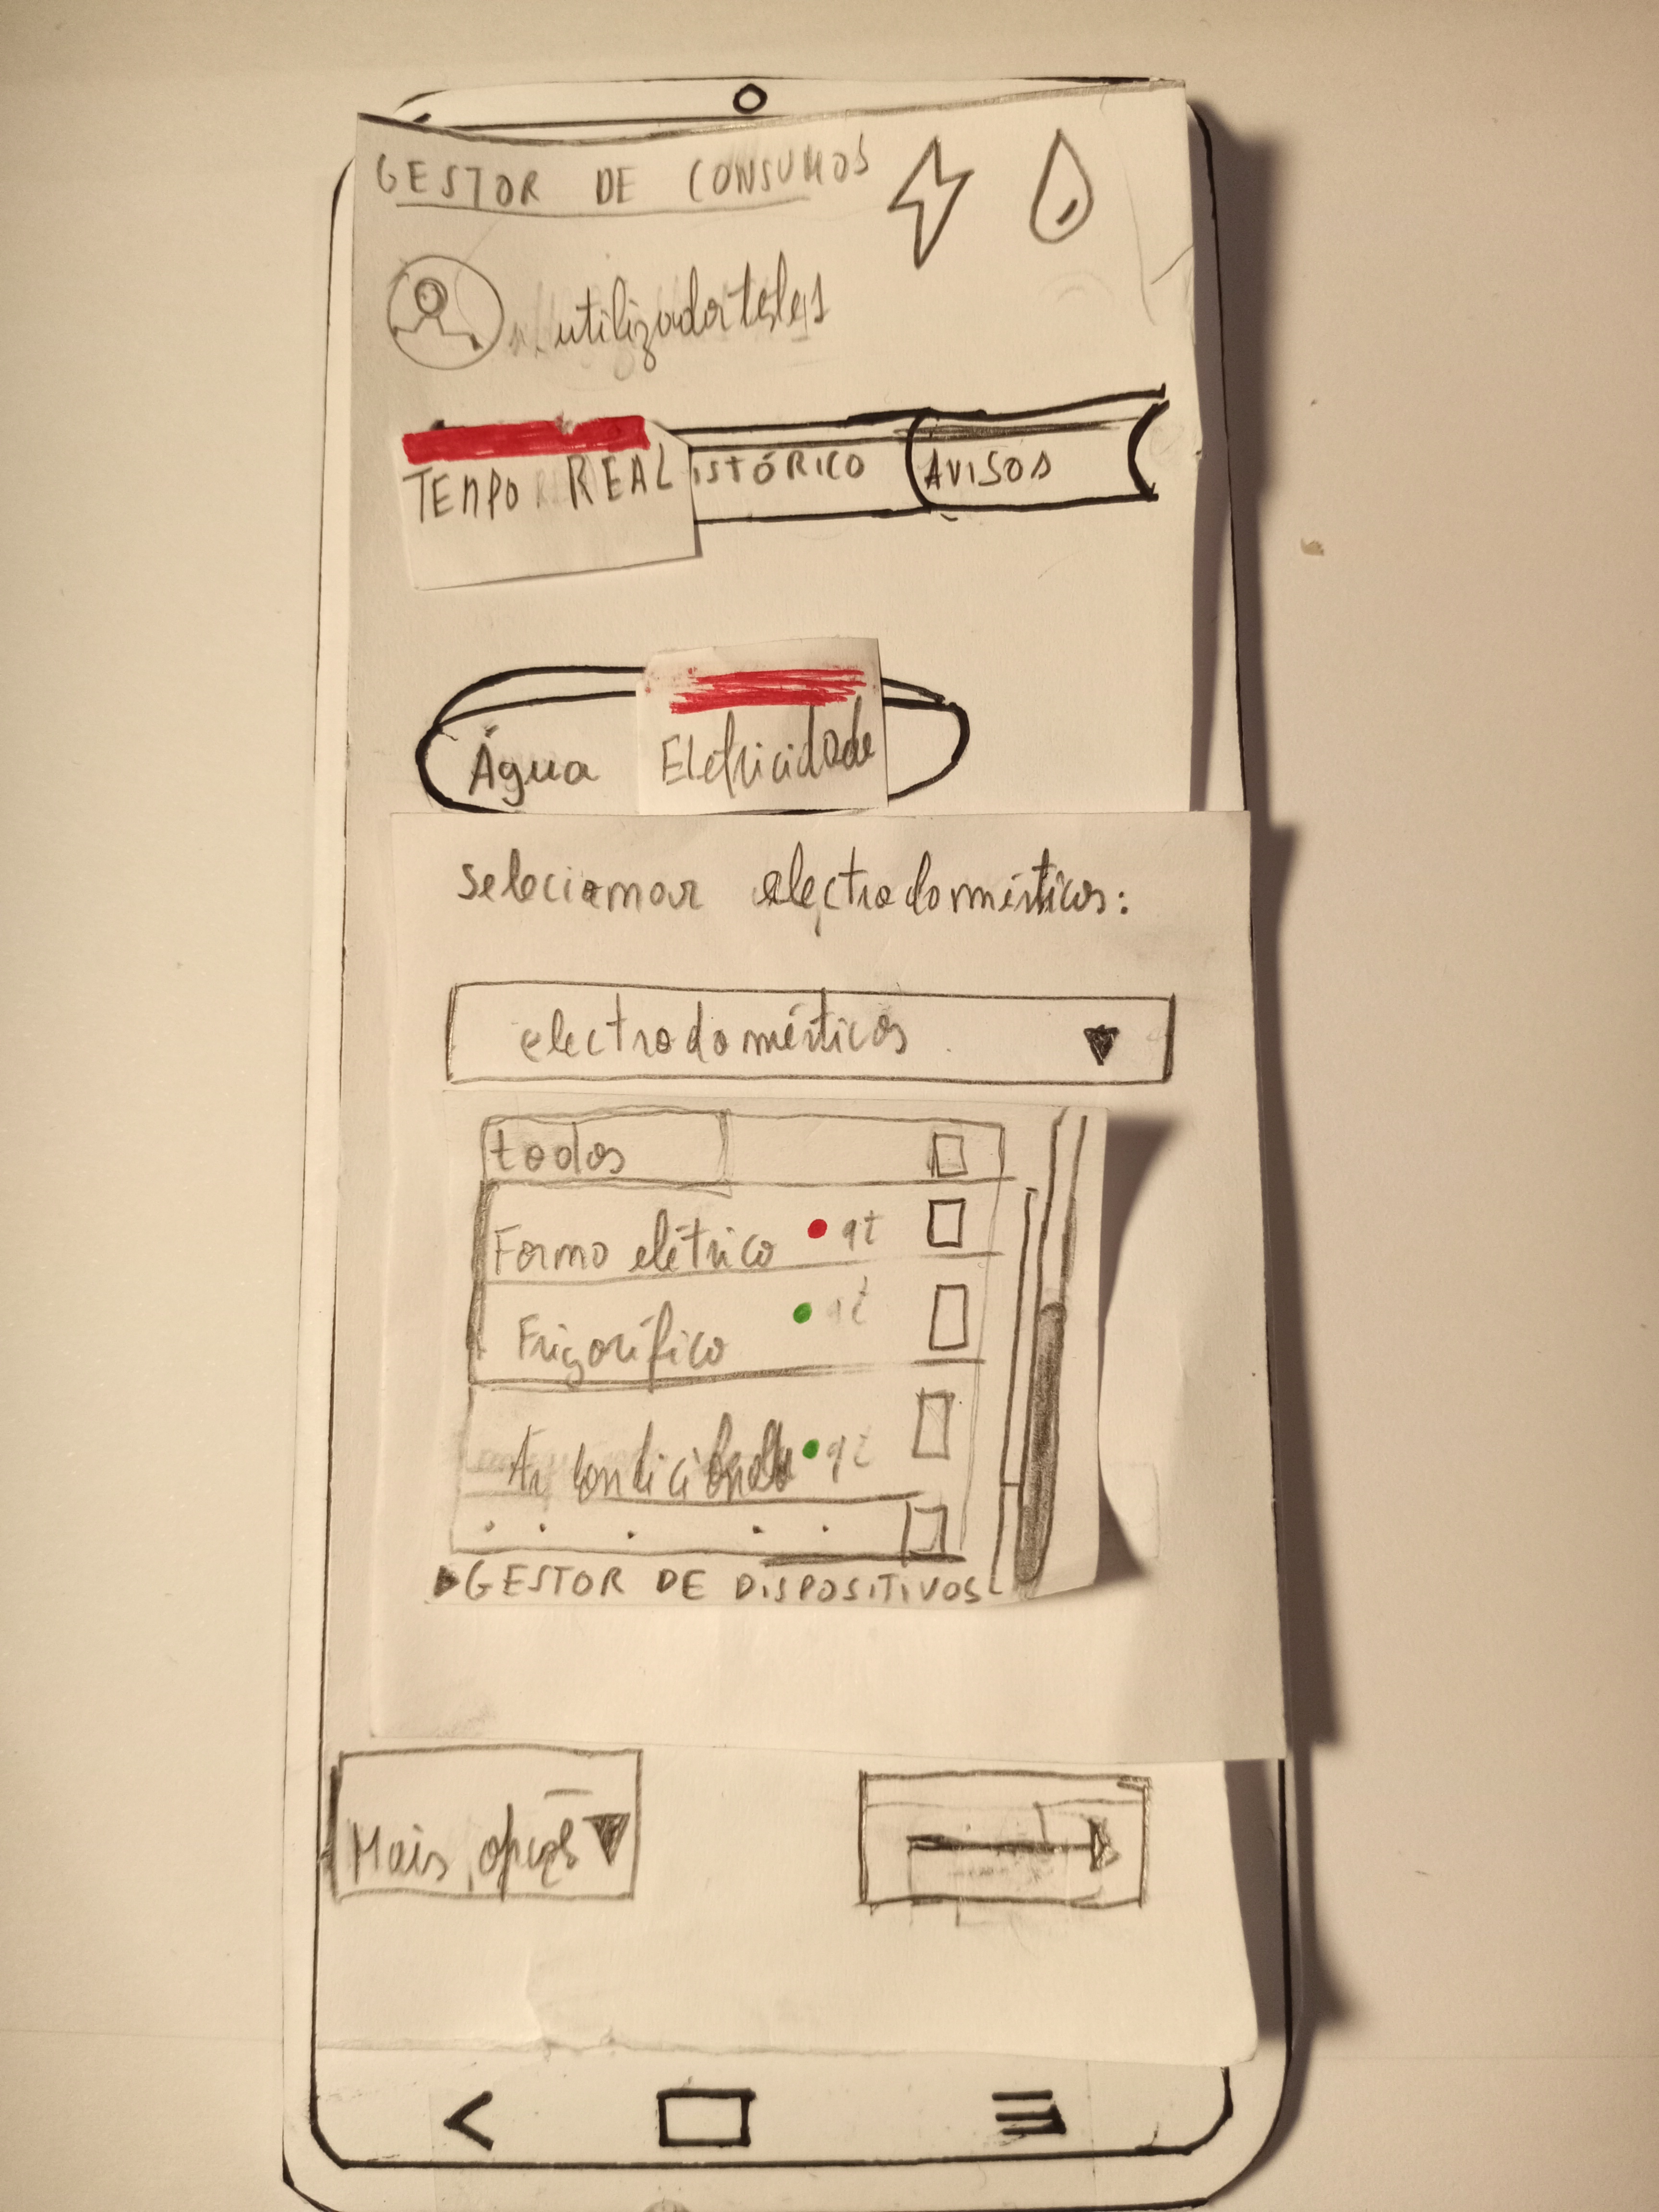 GESTOR DE CONSUMOS
utilizadorteste1
TEMPO REAL ISTÓRICO AVISOS
Água Eletricidade
Selecionar electrodomésticos:
electrodomésticos
todos
Forno elétrico qt
Frigorífico qt
Ar condicionado qt
GESTOR DE DISPOSITIVOS
Mais opções